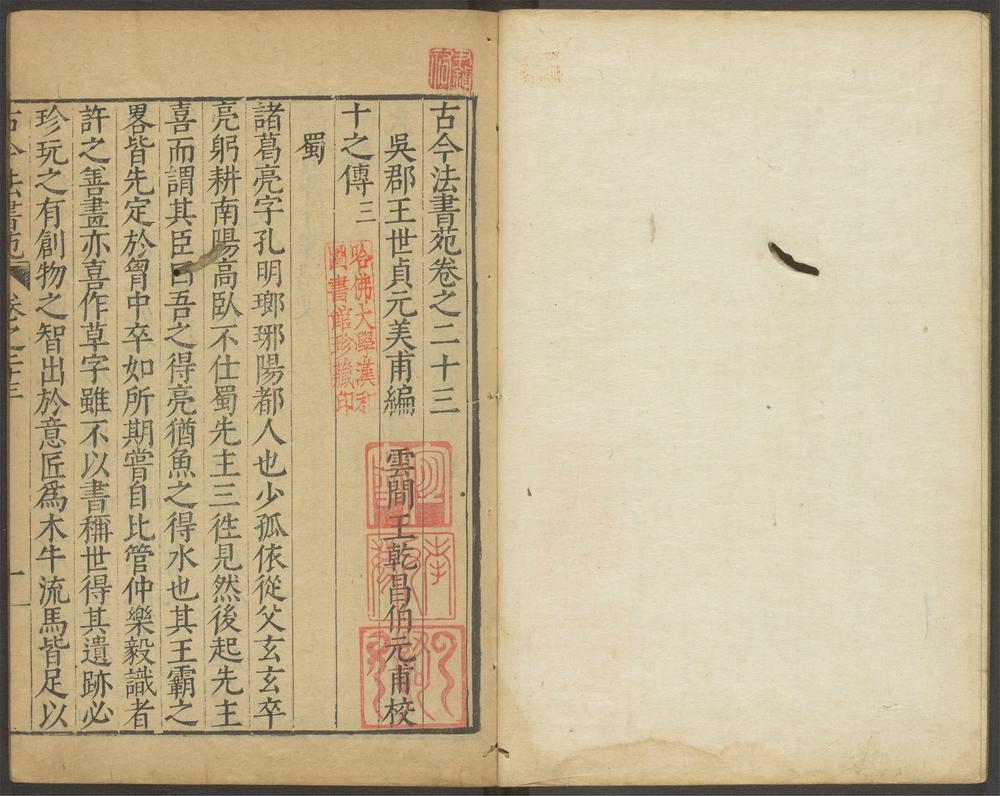 古今法書苑卷之二十三
吳郡王世貞元美甫編　雲間王乾昌伯元甫校
十之傳三
蜀
諸葛亮字孔明瑯琊陽都人也少孤依從父玄玄卒
亮躬耕南陽高臥不仕蜀先主三徃見然後起先主
喜而謂其臣曰吾之得亮猶魚之得水也其王霸之
畧皆先定於胷中卒如所期嘗自比管仲樂毅識者
許之善畫亦喜作草字雖不以書稱世得其遺跡必
珍玩之有創物之智出於意匠爲木牛流馬皆足以
古今法書苑　卷之二十三　一
哈佛大學漢和
圖書館珍藏印